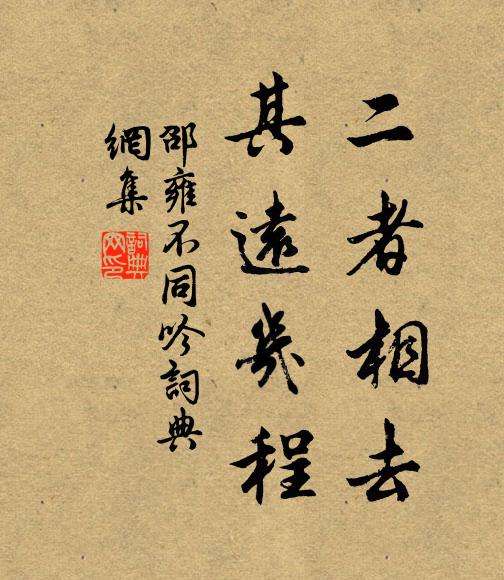 二者相去
其遠幾程
邵雍不同吟詞典
網集
詞典
网印